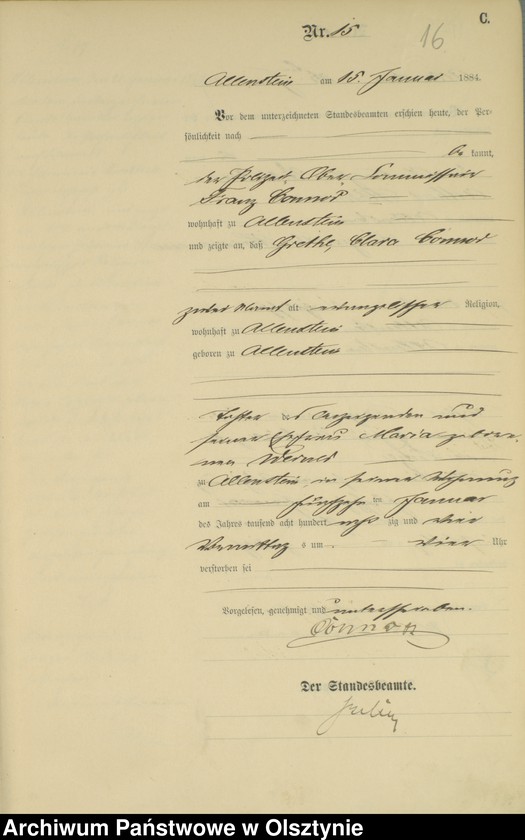 C.
Nr. 15
16
Allenstein am 15. Januar 1884.
Vor dem unterzeichneten Standesbeamten erschien heute, der Per-
sönlichkeit nach
be kannt,
der Polizei Ober Commissair
Franz
wohnhaft zu Allenstein
und zeigte an, daß Grethe, Clara
alt evangelischer Religion,
wohnhaft zu Allenstein
geboren zu Allenstein
Tochter des Anzeigenden und
seiner Ehefrau Maria gebore-
nen
zu Allenstein, in seiner Wohnung
am fünfzehn ten Januar
des Jahres tausend acht hundert acht zig und vier
Vormittag s um vier Uhr
verstorben sei
Vorgelesen, genehmigt und unterschrieben.
Der Standesbeamte.
Archiwum Państwowe w Olsztynie